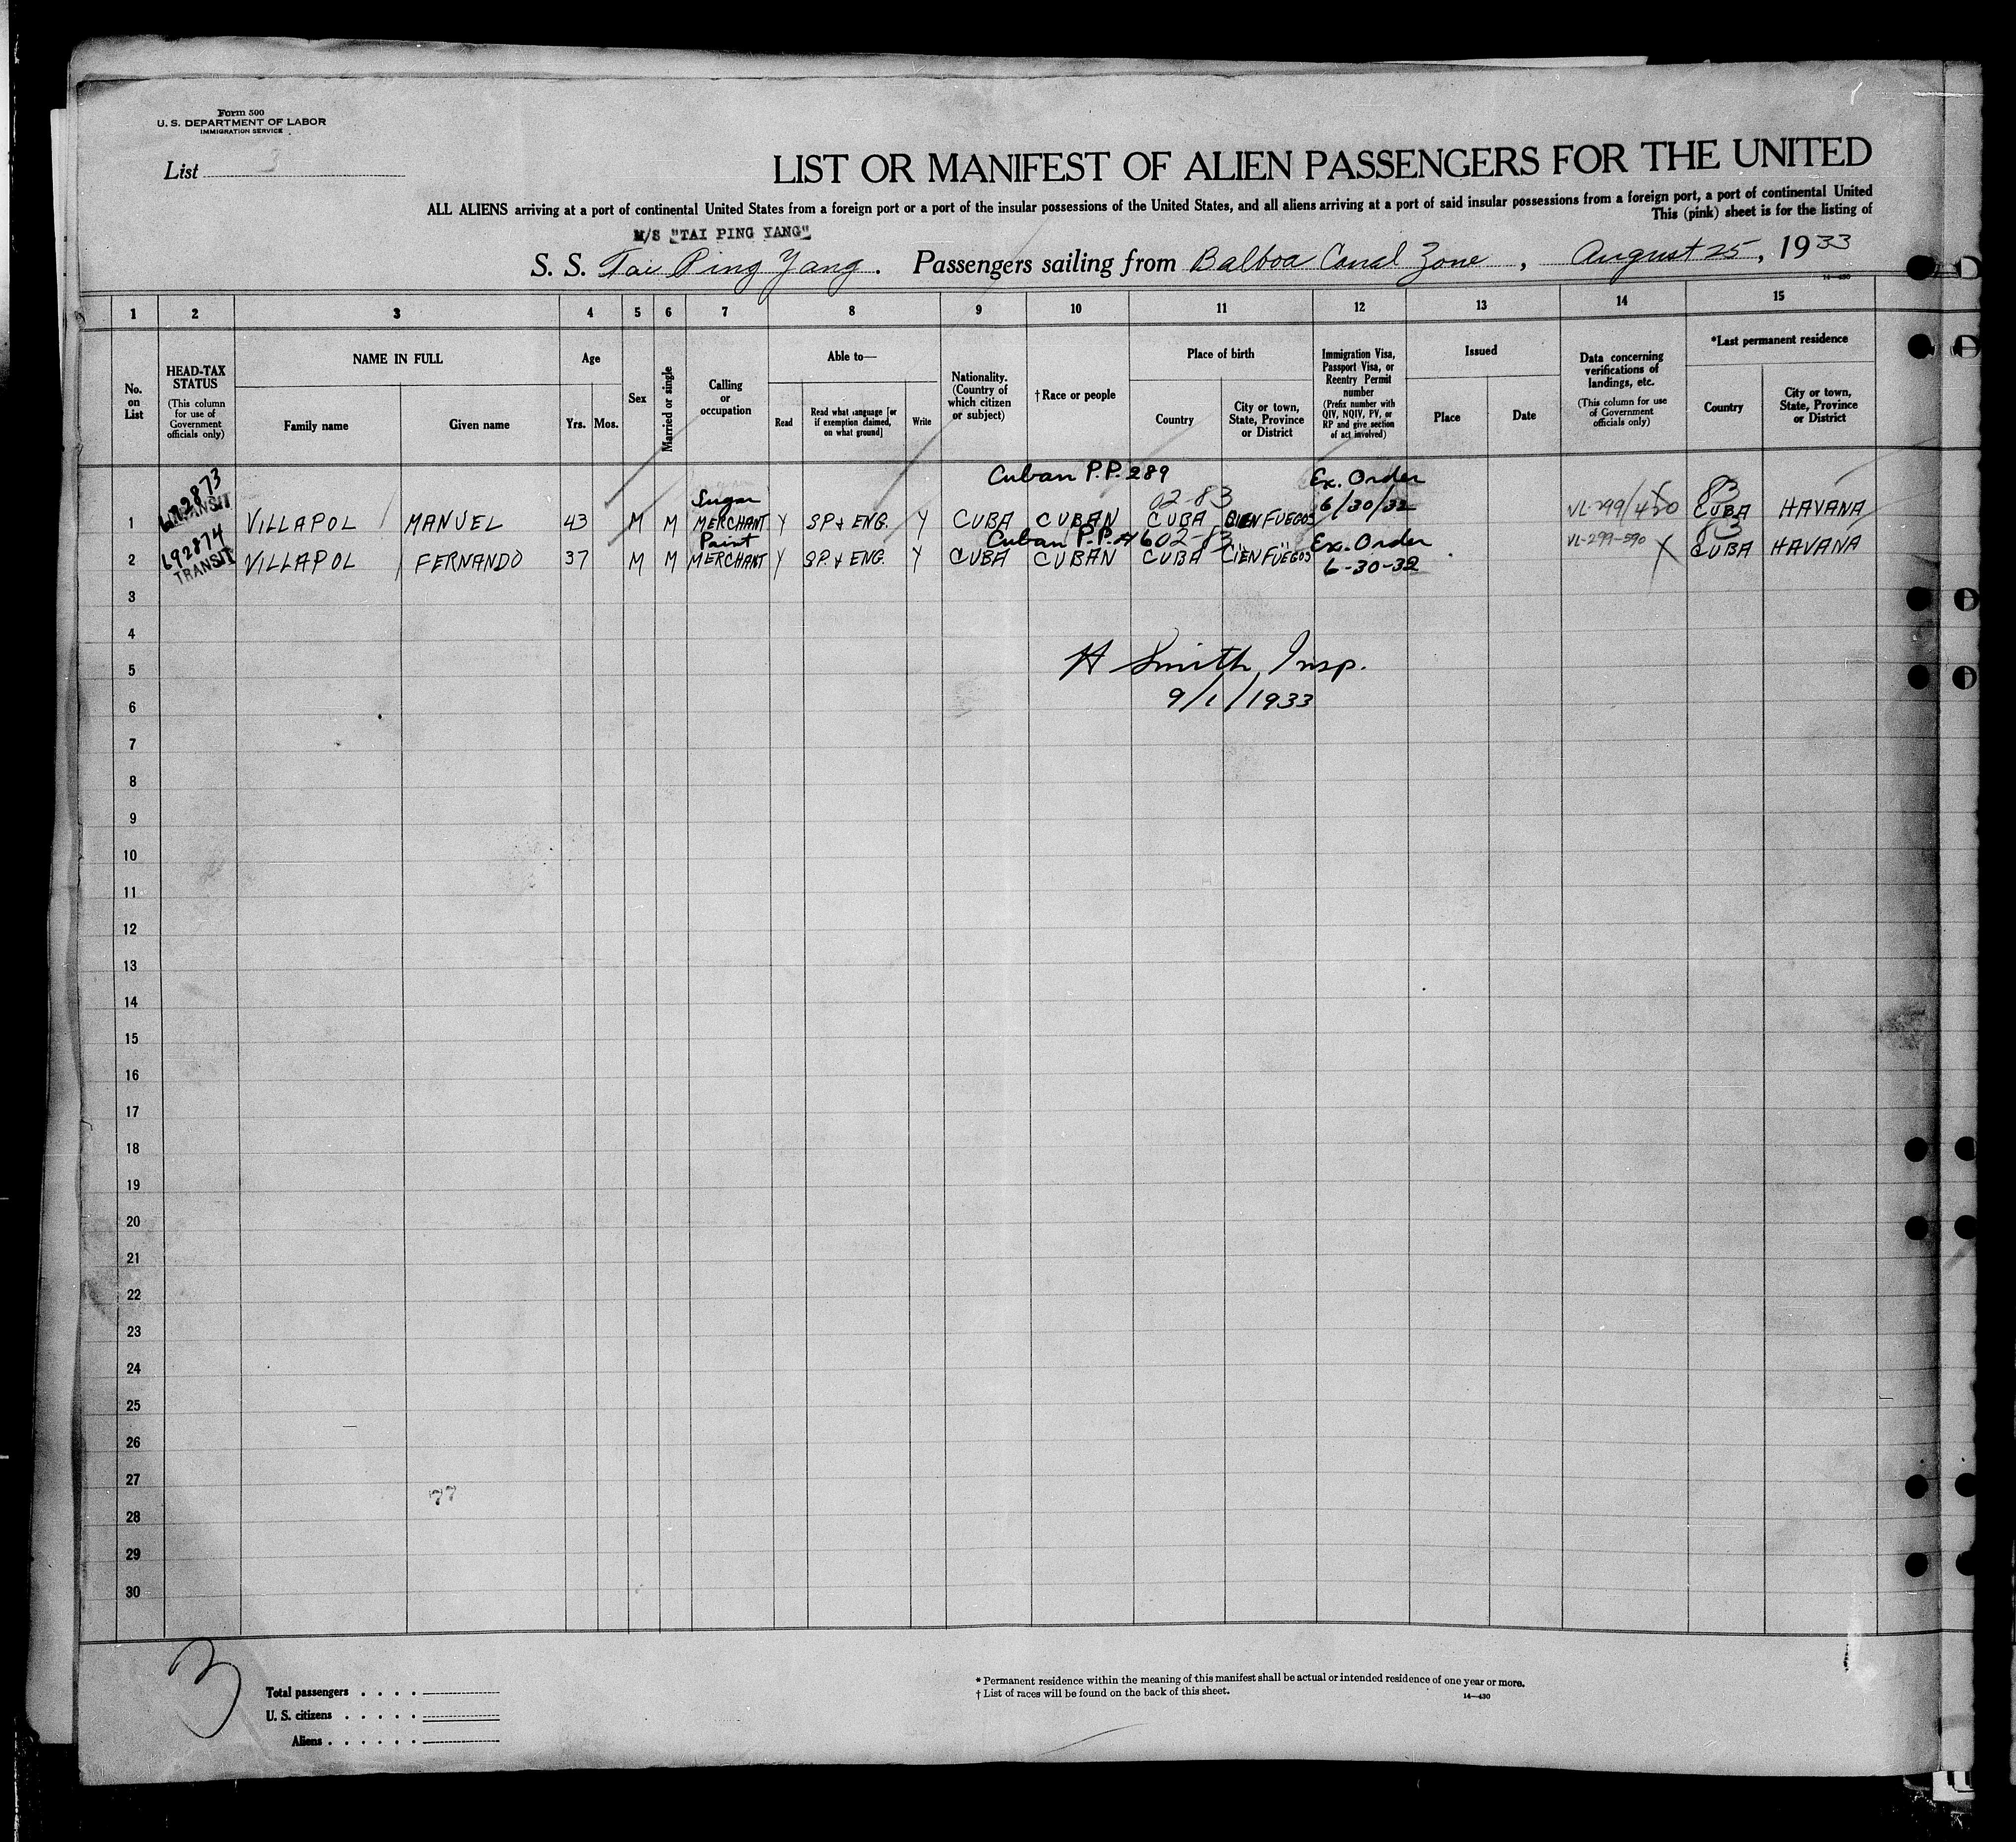 Form 500
U. S. DEPARTMENT OF LABOR
IMMIGRATION SERVICE
List 3
LIST OR MANIFEST OF ALIEN PASSENGERS FOR THE UNITED
ALL ALIENS arriving at a port of continental United States from a foreign port or a port of the insular possessions of the United States, and all aliens arriving at a port of said insular possessions from a foreign port, a port of continental United
This (pink) sheet is for the listing of
M/S "TAI PING YANG"
S. S. Tai Ping Yang. Passengers sailing from Balboa Canal Zone, August 25, 1933
14—430
1 2 3 4 5 6 7 8 9 10 11 12 13 14 15
No. on List
HEAD-TAX STATUS (This column for use of Government officials only)
NAME IN FULL
Family name
Given name
Age
Yrs. Mos.
Sex
Married or single
Calling or occupation
Able to—
Read
Read what language [or if exemption claimed, on what ground]
Write
Nationality. (Country of which citizen or subject)
†Race or people
Place of birth
Country
City or town, State, Province or District
Immigration Visa, Passport Visa, or Reentry Permit number (Prefix number with QIV, NQIV, PV, or RP and give section of act involved)
Issued
Place
Date
Data concerning verifications of landings, etc. (This column for use of Government officials only)
*Last permanent residence
Country
City or town, State, Province or District
Cuban P.P. 289 Ex. Order
692873 TRANSIT Sugar 02-83 6/30/32 83
1 VILLAPOL MANUEL 43 M M MERCHANT Y SP & ENG. Y CUBA CUBAN CUBA CIENFUEGOS VL-299/450 CUBA HAVANA
L92874 TRANSIT Paint Cuban P.P. 602-83 Ex. Order VL-299-590 83
2 VILLAPOL FERNANDO 37 M M MERCHANT Y SP. & ENG. Y CUBA CUBAN CUBA CIENFUEGOS 6-30-32 X CUBA HAVANA
3
4
5
H Smith, Insp.
6
9/1/1933
7
8
9
10
11
12
13
14
15
16
17
18
19
20
21
22
23
24
25
26
27
77
28
29
30
3
Total passengers
U. S. citizens
Aliens
* Permanent residence within the meaning of this manifest shall be actual or intended residence of one year or more.
† List of races will be found on the back of this sheet.
14—430